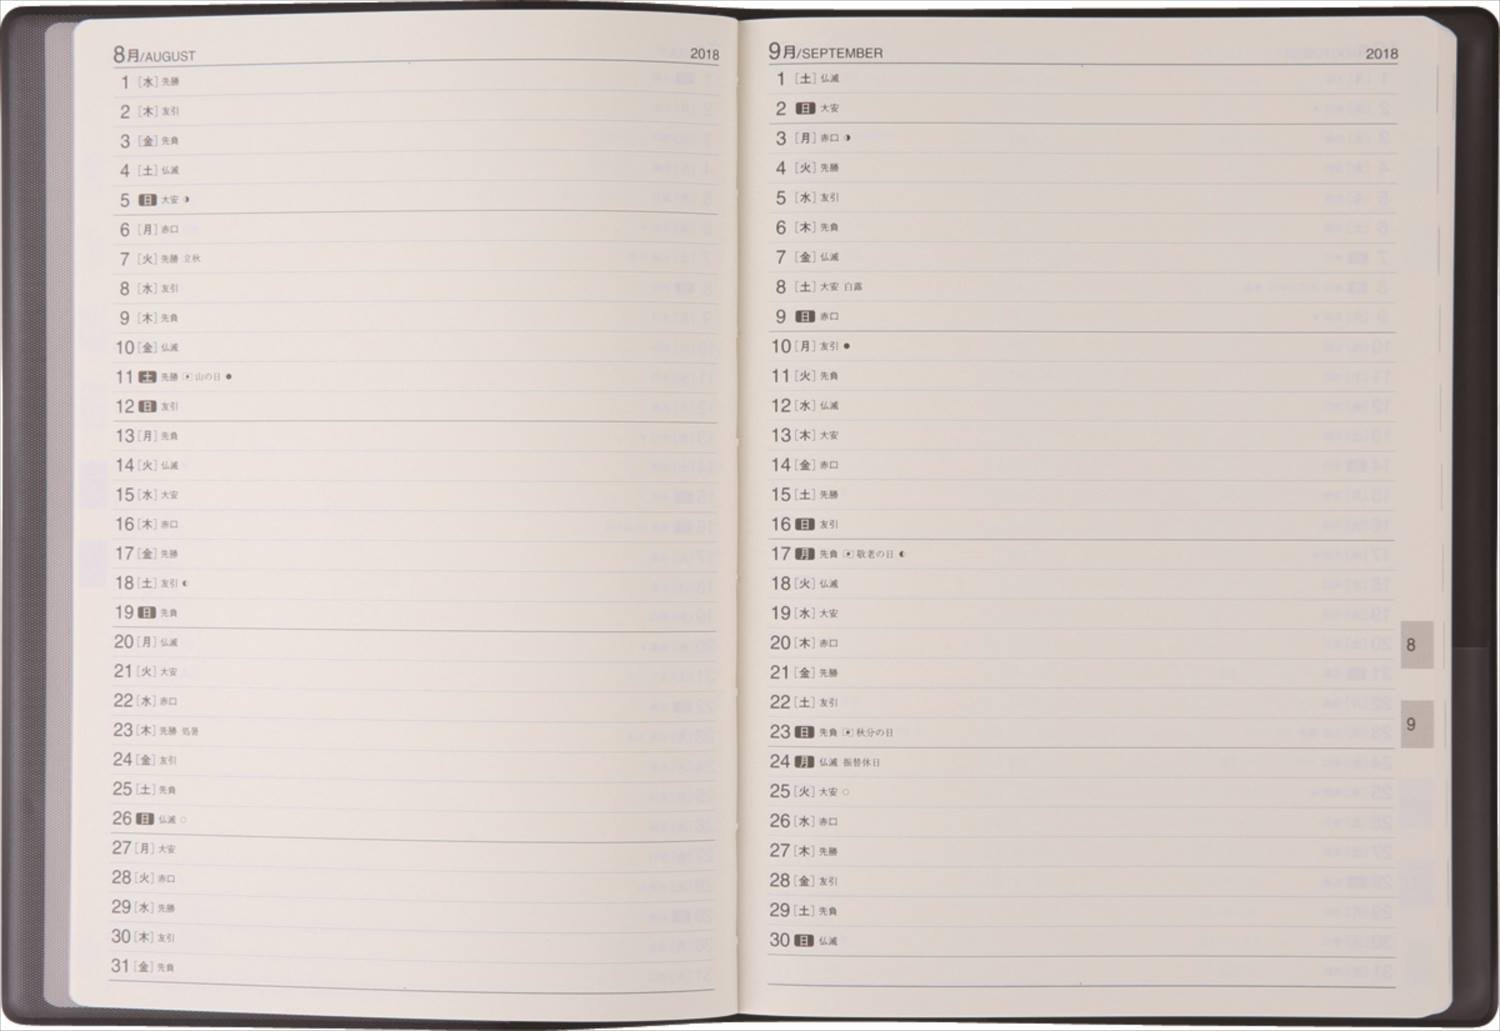 8月/AUGUST 2018
1 [水] 先勝
2 [木] 友引
3 [金] 先負
4 [土] 仏滅
5 日 大安 ◑
6 [月] 赤口
7 [火] 先勝 立秋
8 [水] 友引
9 [木] 先負
10 [金] 仏滅
11 土 先勝 山の日 ●
12 日 友引
13 [月] 先負
14 [火] 仏滅
15 [水] 大安
16 [木] 赤口
17 [金] 先勝
18 [土] 友引 ◐
19 日 先負
20 [月] 仏滅
21 [火] 大安
22 [水] 赤口
23 [木] 先勝 処暑
24 [金] 友引
25 [土] 先負
26 日 仏滅 ○
27 [月] 大安
28 [火] 赤口
29 [水] 先勝
30 [木] 友引
31 [金] 先負
9月/SEPTEMBER 2018
1 [土] 仏滅
2 日 大安
3 [月] 赤口 ◑
4 [火] 先勝
5 [水] 友引
6 [木] 先負
7 [金] 仏滅
8 [土] 大安 白露
9 日 赤口
10 [月] 友引 ●
11 [火] 先負
12 [水] 仏滅
13 [木] 大安
14 [金] 赤口
15 [土] 先勝
16 日 友引
17 月 先負 敬老の日 ◐
18 [火] 仏滅
19 [水] 大安
20 [木] 赤口
21 [金] 先勝
22 [土] 友引
23 日 先負 秋分の日
24 月 仏滅 振替休日
25 [火] 大安 ○
26 [水] 赤口
27 [木] 先勝
28 [金] 友引
29 [土] 先負
30 日 仏滅
8
9